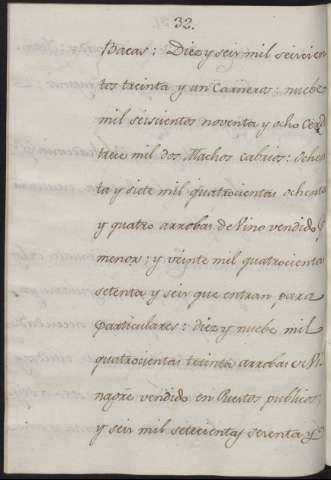 32.
Bacas: Diez y seis mil seiscien
tos treinta y un Carneros: nuebe
mil seiscientos noventa y ocho Cerd
trece mil dos Machos cabrios: ochen
ta y siete mil quatrocientas ochenta
y quatro arrobas de Vino vendido p
menor: y veinte mil quatrocientas
setenta y seis que entran para
particulares: diez y nuebe mil
quatrocientas treinta arrobas de Vi
nagre vendido en Puestos publicos;
y seis mil setecientas sesenta y